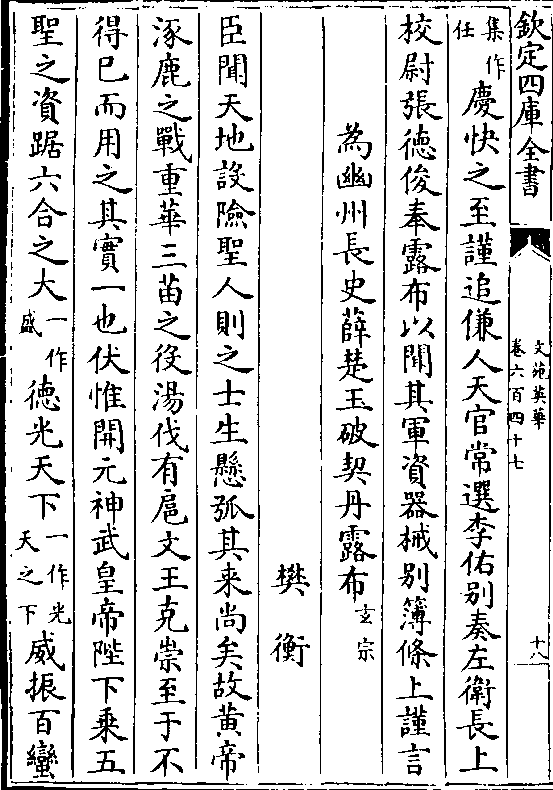 欽定四庫全書
文苑英華
卷六百四十七
十八
集作
任
慶快之至謹追傔人天官常選李佑别奏左衛長上
校尉張德俊奉露布以聞其軍資器械别簿條上謹言
為幽州長史薛楚玉破契丹露布玄宗
樊衡
臣聞天地設險聖人則之士生懸弧其来尚矣故黄帝
涿鹿之戰重華三苗之役湯伐有扈文王克崇至于不
得已而用之其實一也伏惟開元神武皇帝陛下乘五
聖之資踞六合之大一作盛德光天下一作光天之下威振百蠻